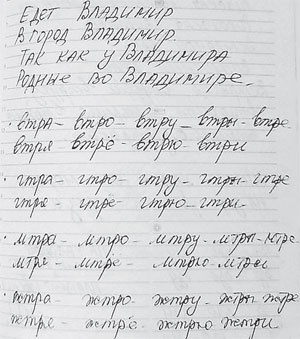 ЕДЕТ ВЛАДИМИР
В ГОРОД ВЛАДИМИР
ТАК КАК У ВЛАДИМИРА
РОДНЫЕ ВО ВЛАДИМИРЕ.
· втра - втро - втру - втры - втре
втря втрё - втрю - втри
· гтра - гтро - гтру - гтры - гтре
гтря - гтре - гтрю - гтри -
· мтра - мтро - мтру - мтры - мтре
мтря - мтре - мтрю - мтри
· жтра - жтро - жтру - жтры жтре
жтря - жтрё - жтрю жтри